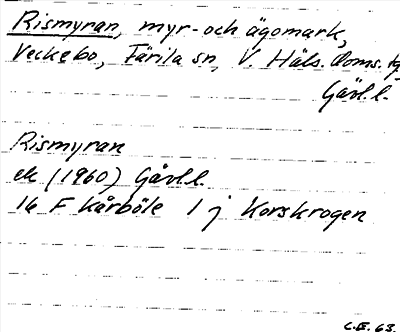 Rismyran, myr- och ägomark,
Veckebo, Färila sn, V. Häls. doms. tg
Gävl.l.
Rismyran
ek (1960) Gävl.l.
16 F Kårböle 1 j Korskrogen
C.E. 63.